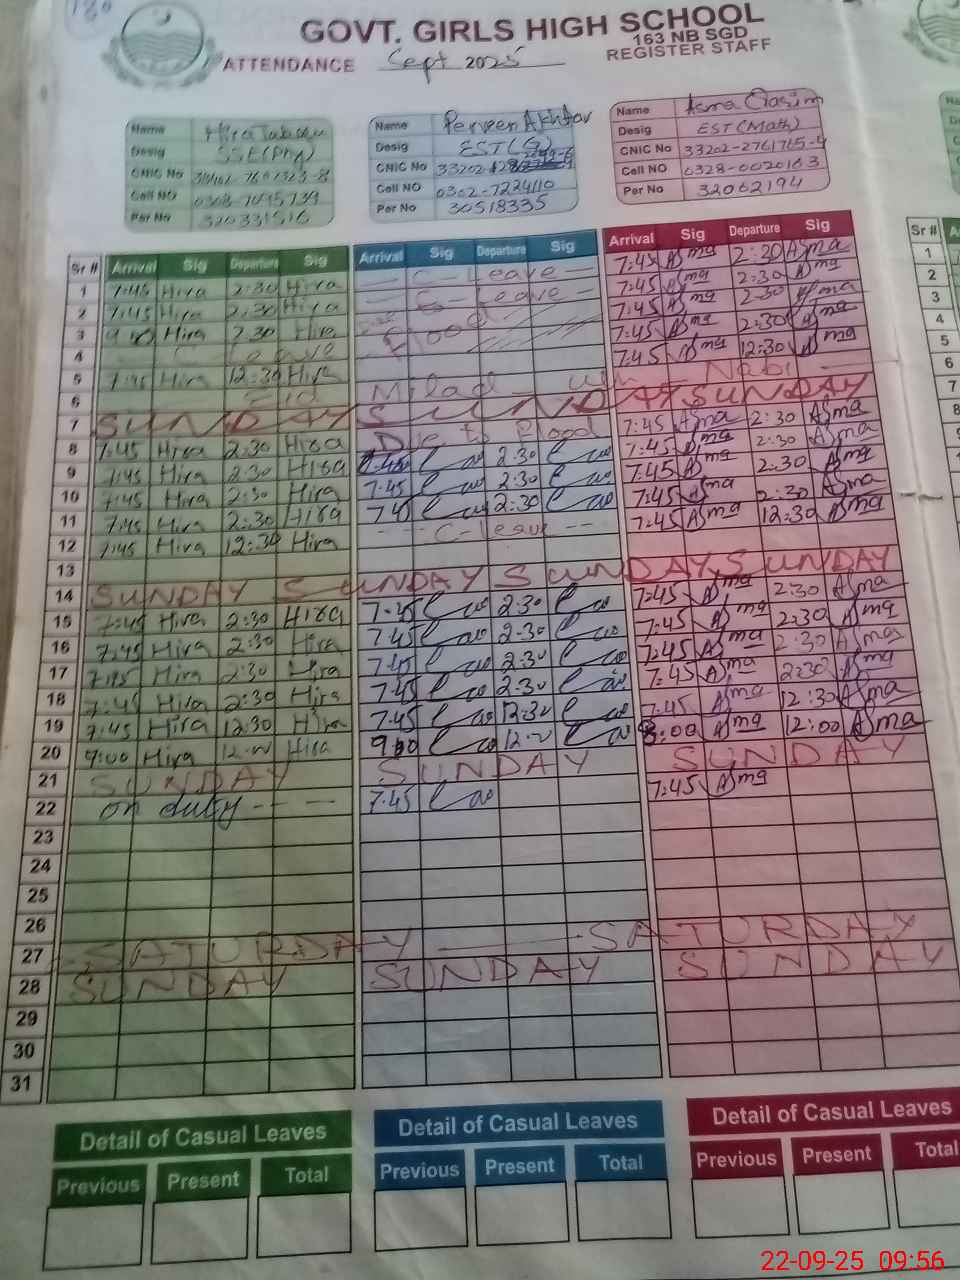 GOVT. GIRLS HIGH SCHOOL
163 NB SGD
ATTENDANCE Sept 2025 REGISTER STAFF
Name Hira
Desig SSE(Phy)
CNIC No
Cell NO
Per No
Name Perveen Akhtar
Desig EST(G)
CNIC No 33202
Cell NO 0302-7224110
Per No 30518335
Name Asma Qasim
Desig EST(Math)
CNIC No 33202-2761765-4
Cell NO 0328-0020163
Per No 32062194
Sr # Arrival Sig Departure Sig Arrival Sig Departure Sig Arrival Sig Departure Sig Sr #
1 7:45 Hira 2:30 Hira C-Leave 7:45 Asma 2:30 Asma 1
2 7:45 Hira 2:30 Hira C-Leave 7:45 Asma 2:30 Asma 2
3 Hira 2:30 Hira Flood 7:45 Asma 2:30 Asma 3
4 Leave 7:45 Asma 2:30 Asma 4
5 7:45 Hira 12:30 Hira 7:45 Asma 12:30 Asma 5
6 Eid Milad un Nabi 6
7 SUNDAY SUNDAY SUNDAY 7
8 7:45 Hira 2:30 Hira Due to Flood 7:45 Asma 2:30 Asma 8
9 7:45 Hira 2:30 Hira 7:45 2:30 7:45 Asma 2:30 Asma
10 7:45 Hira 2:30 Hira 7:45 2:30 7:45 Asma 2:30 Asma
11 7:45 Hira 2:30 Hira 2:30 7:45 Asma 2:30 Asma
12 7:45 Hira 12:30 Hira C-leave 7:45 Asma 12:30 Asma
13
14 SUNDAY SUNDAY SUNDAY SUNDAY
15 7:45 Hira 2:30 Hira 7:45 2:30 7:45 Asma 2:30 Asma
16 7:45 Hira 2:30 Hira 7:45 2:30 7:45 Asma 2:30 Asma
17 7:45 Hira 2:30 Hira 7:45 2:30 7:45 Asma 2:30 Asma
18 7:45 Hira 2:30 Hira 7:45 2:30 7:45 Asma 2:30 Asma
19 7:45 Hira 12:30 Hira 7:45 12:30 7:45 Asma 12:30 Asma
20 9:00 Hira Hira 9:00 8:00 Asma 12:00 Asma
21 SUNDAY SUNDAY SUNDAY
22 on duty 7:45 7:45 Asma
23
24
25
26
27 SATURDAY SATURDAY
28 SUNDAY SUNDAY SUNDAY
29
30
31
Detail of Casual Leaves Detail of Casual Leaves Detail of Casual Leaves
Previous Present Total Previous Present Total Previous Present Total
22-09-25 09:56